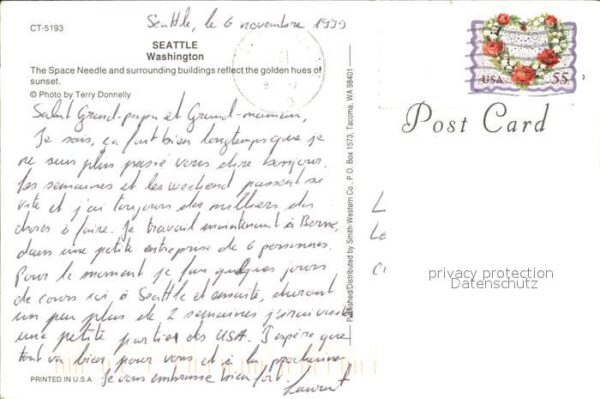 Seattle, le 6 novembre 1999
CT-5193
SEATTLE
Washington
The Space Needle and surrounding buildings reflect the golden hues of
sunset.
© Photo by Terry Donnelly
Salut Grand-papa et Grand-maman,
Je sais, ça fait bien longtemps que je
ne suis plus passé vous dire bonjour.
Les semaines et les weekend passent si
vite et j'ai toujours des milliers de
choses à faire. Je travail maintenant à Berne,
dans une petite entreprise de 6 personnes.
Pour le moment je fais quelques jours
de cours ici, à Seattle et ensuite, durant
un peu plus de 2 semaines
une petite partie des USA. J'espère que
tout va bien pour vous et à la prochaine
Je vous embrasse bien fort.
Laurent
PRINTED IN U.S.A.
Published/Distributed by Smith-Western Co., P.O. Box 1573, Tacoma, WA 98401
USA 55
Post Card
privacy protection
Datenschutz